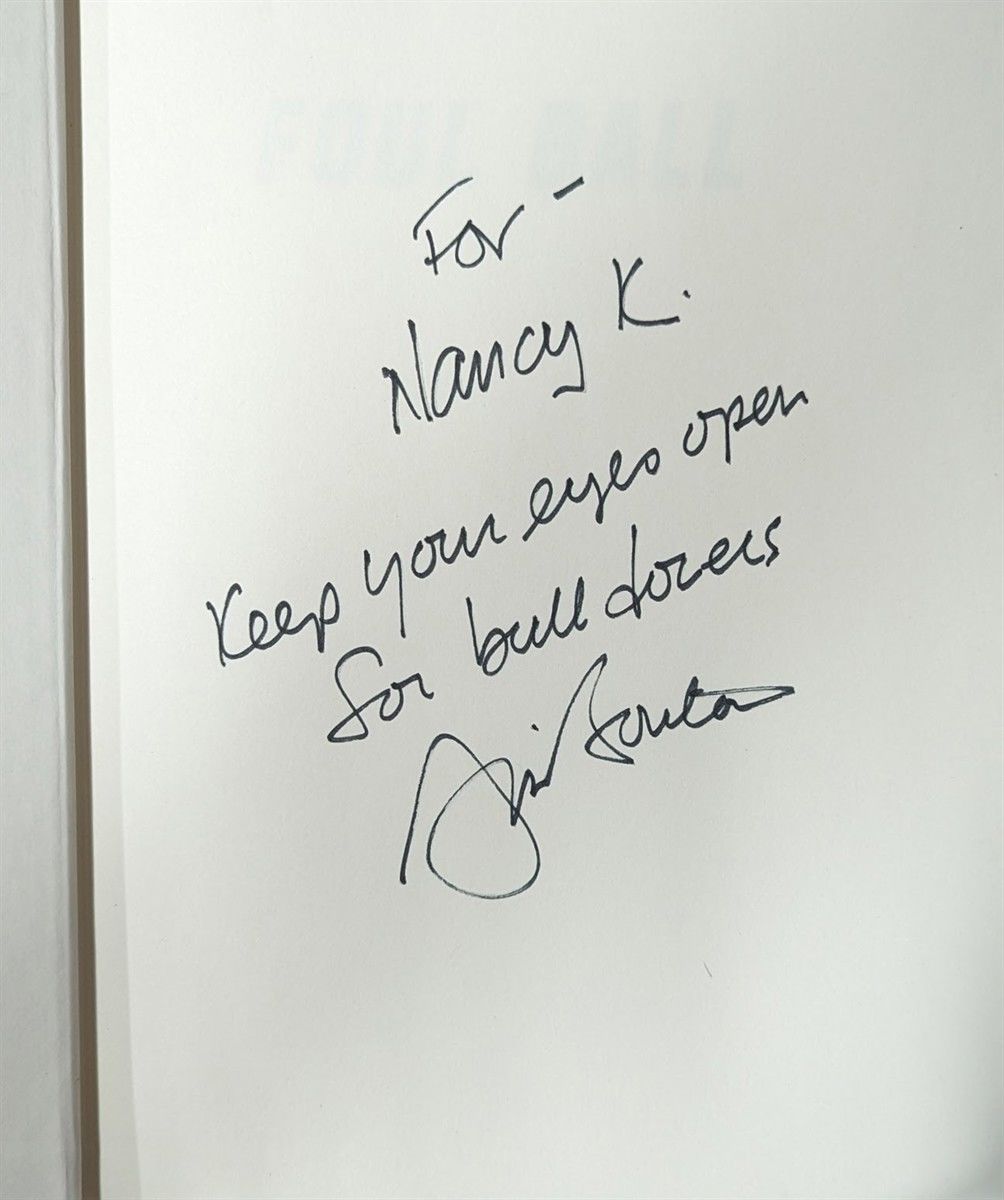 FOUL BALL
For –
Nancy K.
Keep your eyes open
for bull dozers
Jim Bouton